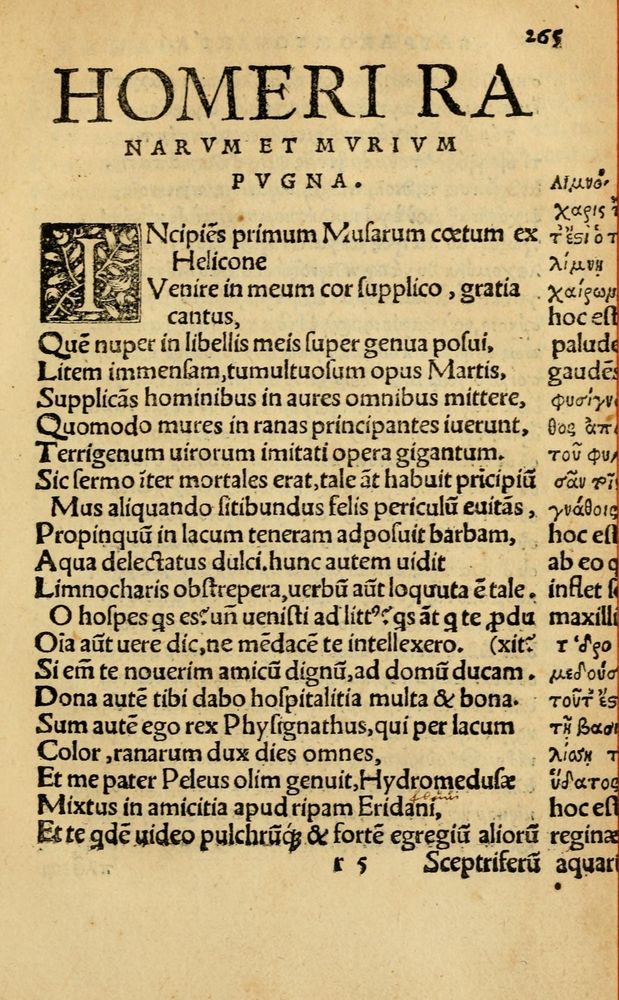 265
HOMERI RA
NARVM ET MVRIVM
PVGNA.
INcipiẽs primum Musarum cœtum ex
Helicone
Venire in meum cor supplico, gratia
cantus,
Quẽ nuper in libellis meis super genua posui,
Litem immensam, tumultuosum opus Martis,
Supplicãs hominibus in aures omnibus mittere,
Quomodo mures in ranas principantes iuerunt,
Terrigenum uirorum imitati opera gigantum.
Sic sermo ĩter mortales erat, tale ãt habuit prĩcipiũ
Mus aliquando sitibundus felis periculũ euitãs,
Propinquũ in lacum teneram adposuit barbam,
Aqua delectatus dulci. hunc autem uidit
Limnocharis obstrepera, uerbũ aũt loquuta ẽ tale.
O hospes qs es? uñ uenisti ad litt⁹? qs ãt q te ꝓdu
Oĩa aũt uere dic, ne mẽdacẽ te intellexero. (xit?
Si em̃ te nouerim amicũ dignũ, ad domũ ducam.
Dona autẽ tibi dabo hospitalitia multa & bona.
Sum autẽ ego rex Physignathus, qui per lacum
Color, ranarum dux dies omnes,
Et me pater Peleus olim genuit, Hydromedusæ
Mixtus in amicitia apud ripam Eridani,
Et te qdẽ uideo pulchrũq; & fortẽ egregiũ aliorũ
r 5 Sceptriferũ
Λιμνό-
χαρις
τ̓ έξι ὁ τ
λίμνη
χαίρωμ
hoc est
palude
gaudẽs
φυσίγν
θος ἀπ
τοῦ φυ
σᾶν
γνάθοις
hoc est
ab eo q
inflet s
maxilli
μεδούσ
τῇ βασι
λίσση τ
ὕδατος
hoc est
reginæ
aquari